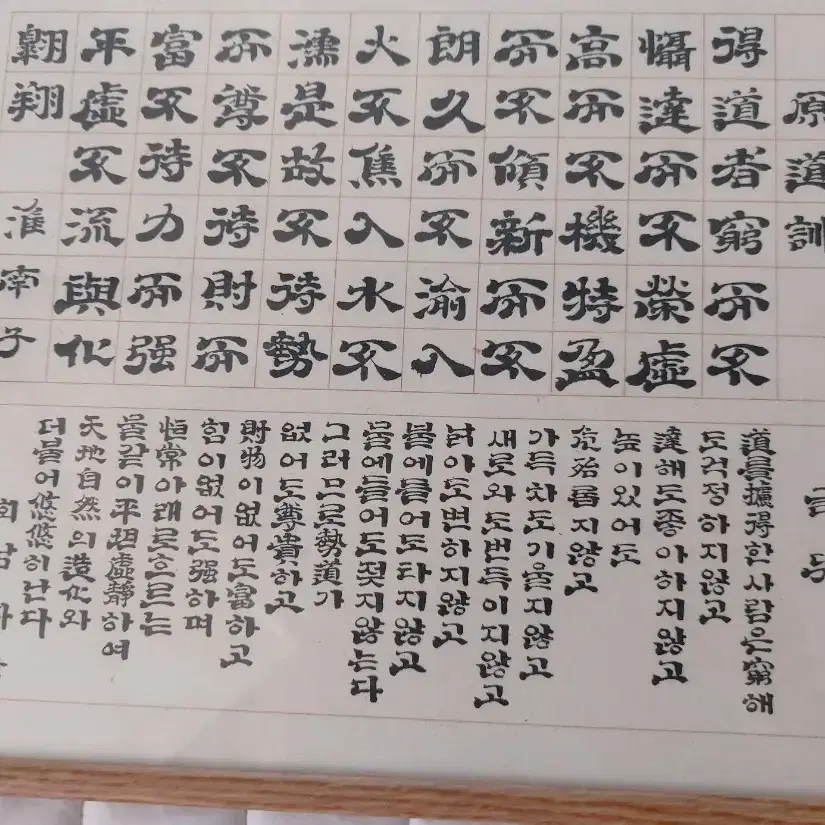 原道訓
得道者窮而不
懾達而不榮虛
高而不機特盈
而不傾新而不
朗久而不渝入
火不焦入水不
濡是故不待勢
而尊不待財而
富不待力而强
平虛不流與化
翺翔
淮南子
道를攄得한사람은窮해
도걱정하지않고
達해도좋아하지않고
높이있어도
危殆롭지않고
가득차도기울지않고
새로와도번득이지않고
낡아도변하지않고
불에들어도타지않고
물에들어도젖지않는다
그러므로勢道가
없어도尊貴하고
財物이없어도富하고
힘이없어도强하며
恒常아래로흐르는
물같이平坦虛靜하여
天地自然의造化와
더불어悠悠히난다
회남자